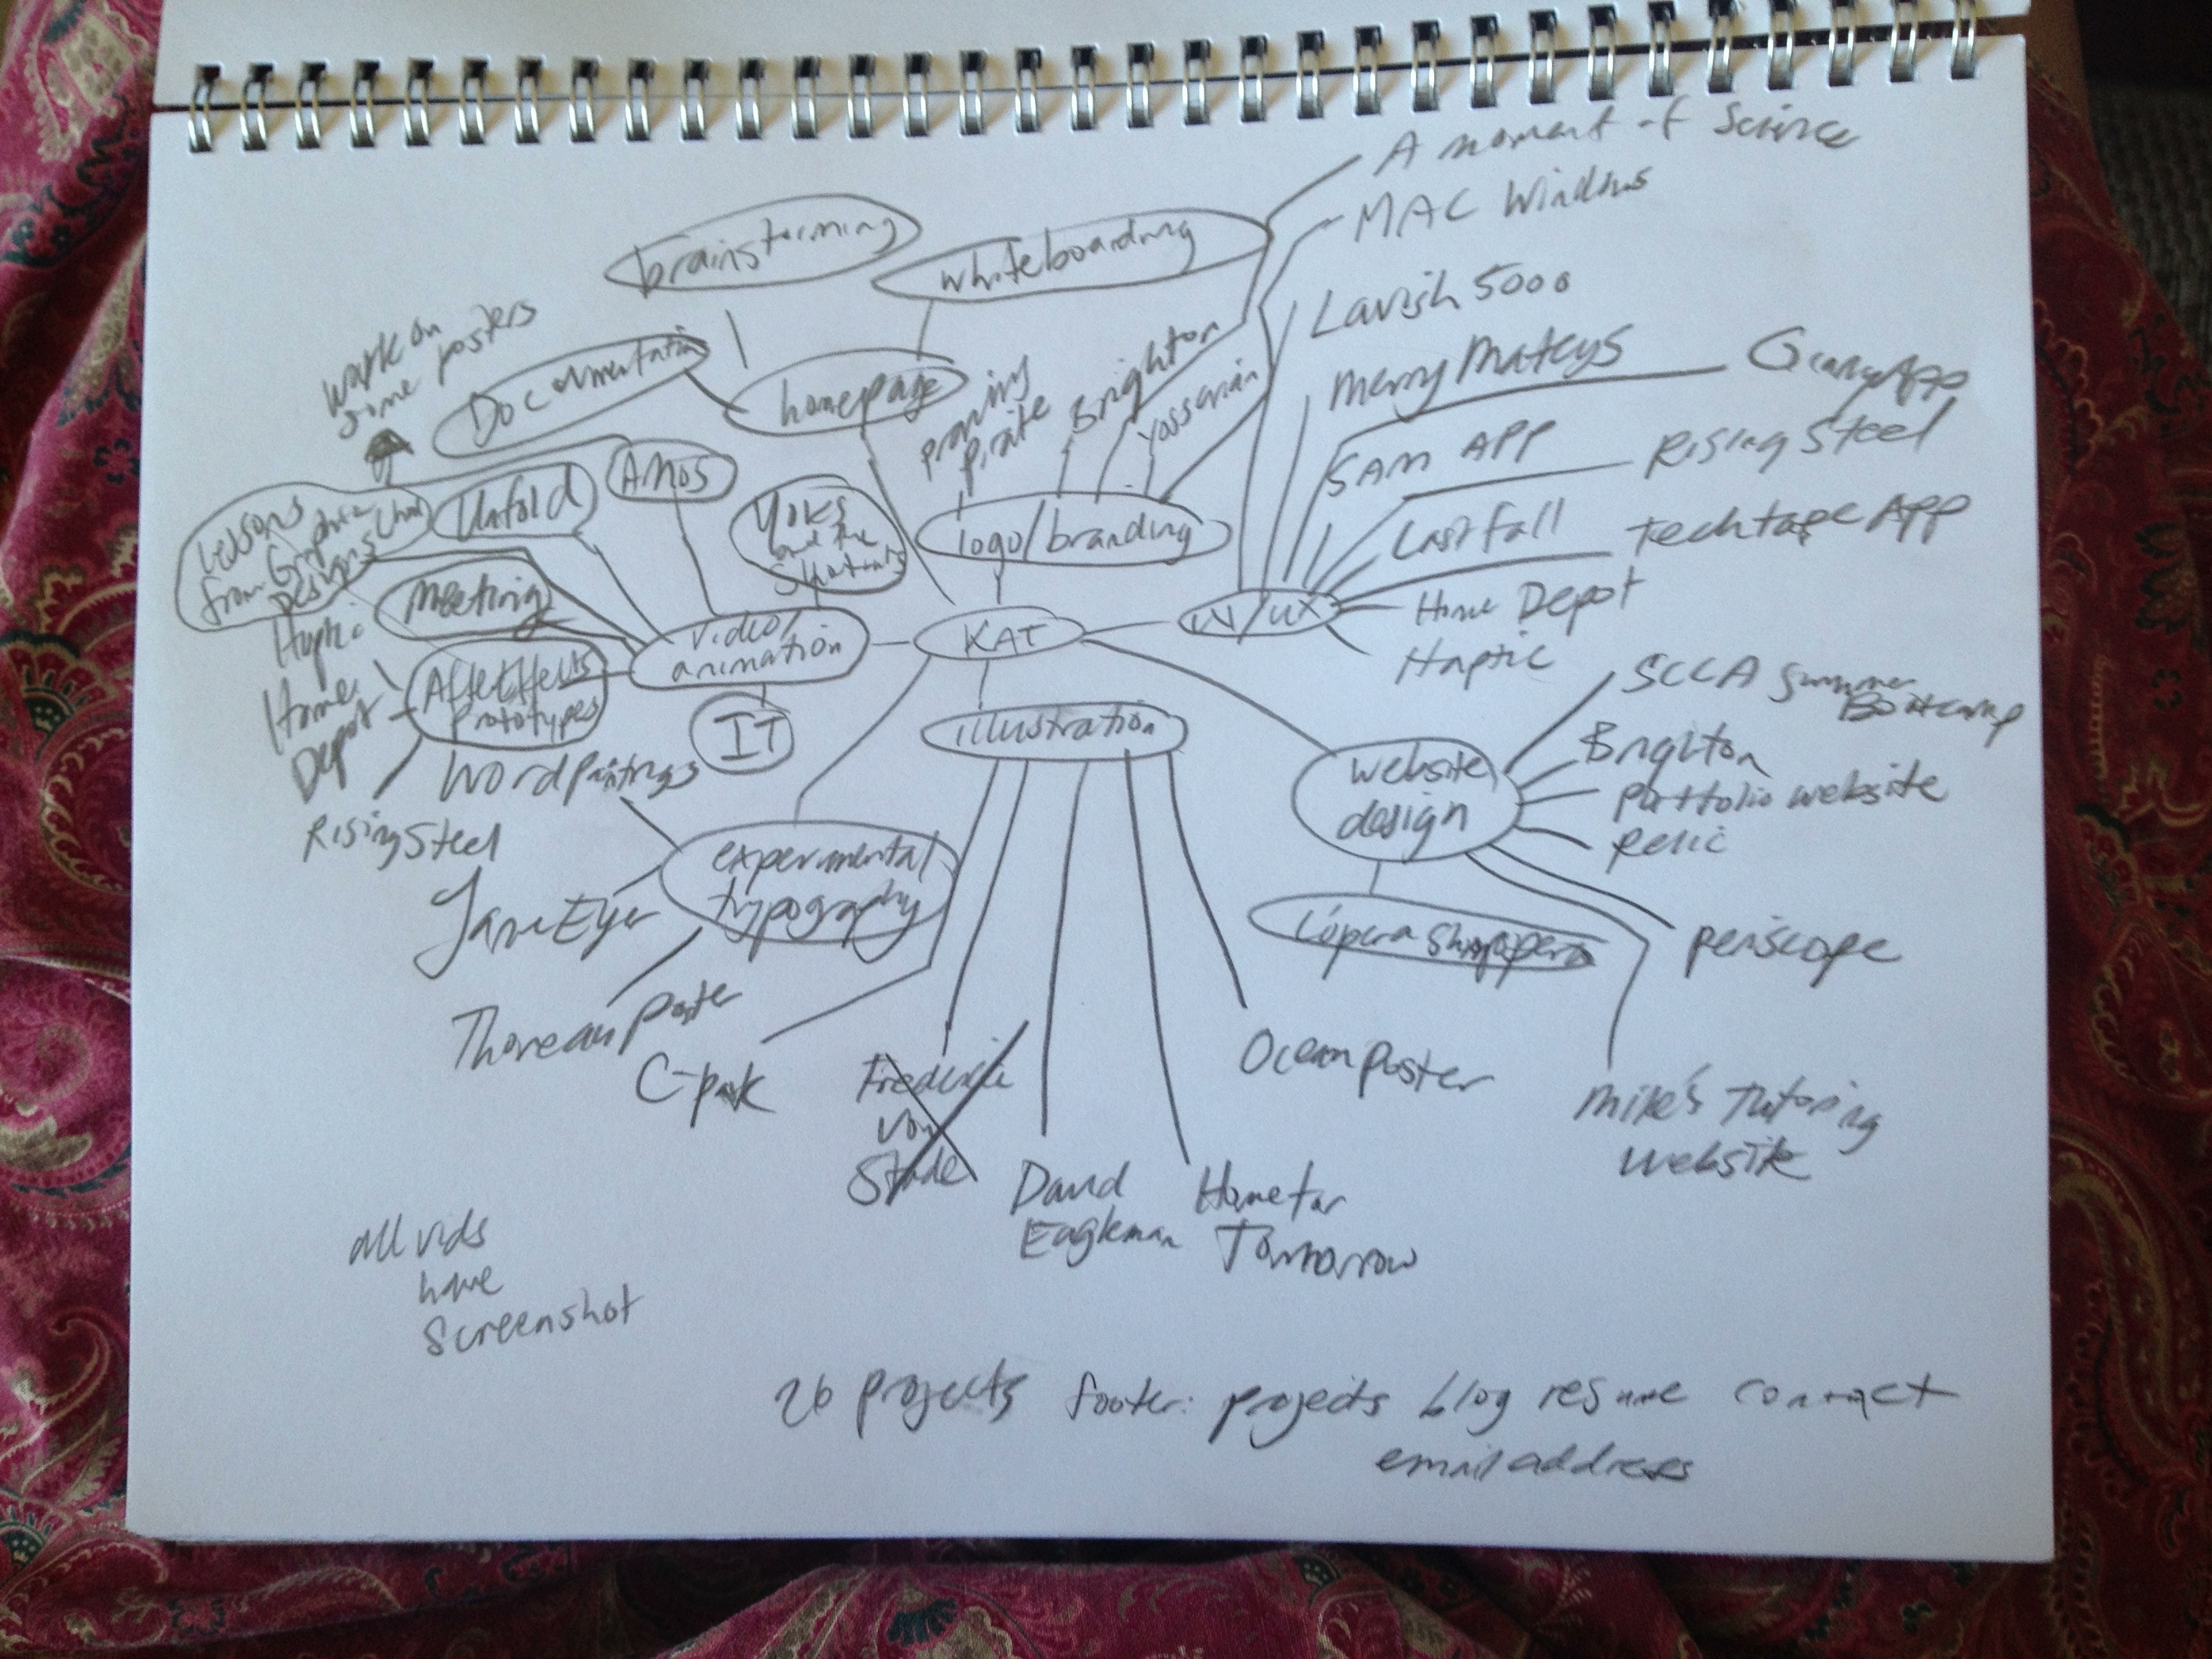 A moment of Science
MAC Windows
brainstorming
whiteboarding
Lavish 5000
work on
some posters
Documentation
homepage
Brighton
pirate
Yossarian
Merry Mateys
SAM APP
Rising Steel
Last Fall
Techtape App
Home Depot
Haptic
Lessons
from Graphic
Design School
Unfold
AMOS
Yoks
and the
logo/branding
Meeting
video/
animation
KAT
UI/UX
Home
Depot
After Effects
Prototypes
IT
illustration
SCCA Summer
Bootcamp
Brighton
Portfolio website
Relic
website
design
Word Paintings
Rising Steel
experimental
typography
Jane Eyer
L'opera
periscope
Thoreau Poster
C-pak
Frederica
von
Stade
Ocean Poster
Mike's Tutoring
website
David
Eagleman
Home for
Tomorrow
all vids
have
Screenshot
26 projects footer: projects blog resume contact
email address